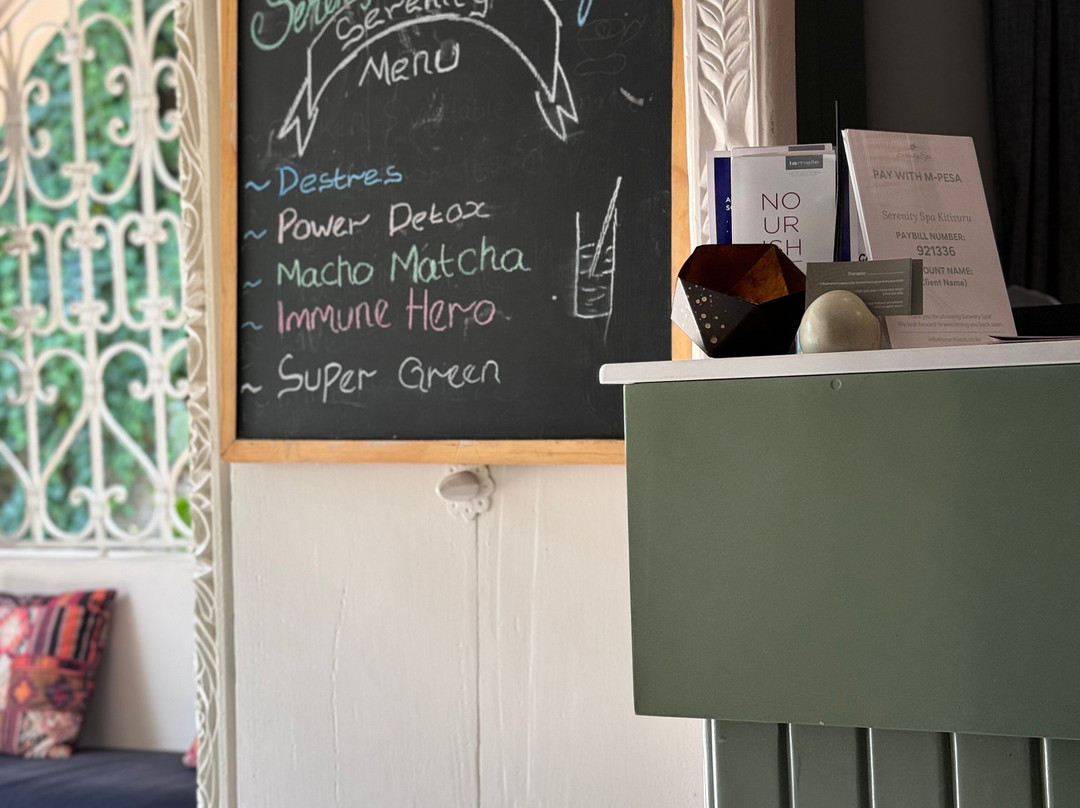 Serenity
Menu
~ Destres
~ Power Detox
~ Macho Matcha
~ Immune Hero
~ Super Green
lamelle
NO
UR
ISH
PAY WITH M-PESA
Serenity Spa Kitisuru
PAYBILL NUMBER:
921336
OUNT NAME:
Client Name)